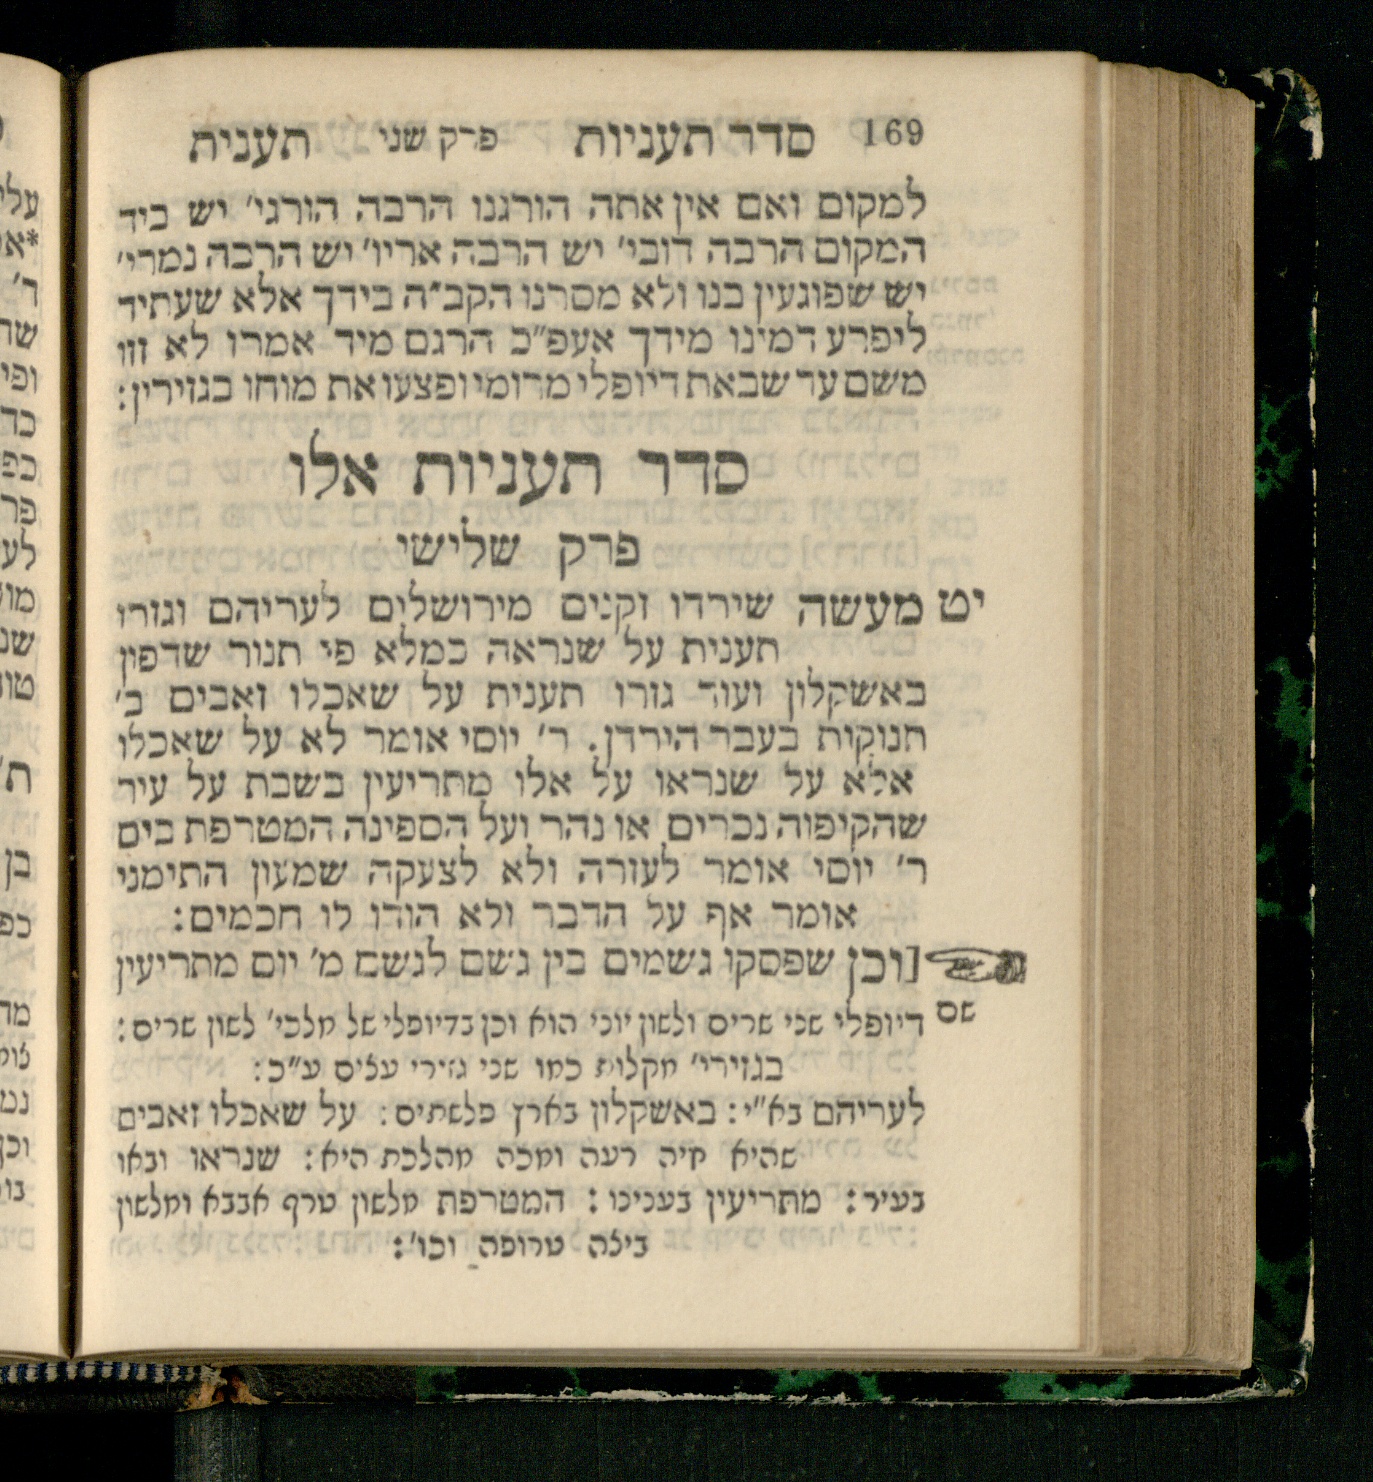 169 סדר תעניות פרק שני תענית
למקום ואם אין אתה הורגנו הרבה הורגי׳ יש ביד
המקום הרבה דובי׳ יש הרבה אריו׳ יש הרבה נמרי׳
יש שפוגעין בנו ולא מסרנו הקב״ה בידך אלא שעתיד
ליפרע דמינו מידך אעפ״כ הרגם מיד אמרו לא זזו
משם עד שבאת דיופלי מרומי ופצעו את מוחו בגזירין:
סדר תעניות אלו
פרק שלישי
יט מעשה שירדו זקנים מירושלים לעריהם וגזרו
תענית על שנראה כמלא פי תנור שדפון
באשקלון ועוד גזרו תענית על שאכלו זאבים ב׳
תנוקות בעבר הירדן. ר׳ יוסי אומר לא על שאכלו
אלא על שנראו על אלו מתריעין בשבת על עיר
שהקיפוה נכרים או נהר ועל הספינה המטרפת בים
ר׳ יוסי אומר לעזרה ולא לצעקה שמעון התימני
אומר אף על הדבר ולא הודו לו חכמים:
[וכן שפסקו גשמים בין גשם לגשם מ׳ יום מתריעין
שם דיופלי שני שרים ולשון יוני הוא וכן בדיופלי של מלכי׳ לשון שרים:
בגזירי׳ מקלות כמו שני גזירי עצים ע״כ:
לעריהם בא״י: באשקלון בארץ פלשתים: על שאכלו זאבים
שהיא חיה רעה ומכה מהלכת היא: שנראו ובאו
בעיר: מתריעין בעננינו: המטרפת מלשון טרף אבבא ומלשון
ביצה טרופה וכו׳: